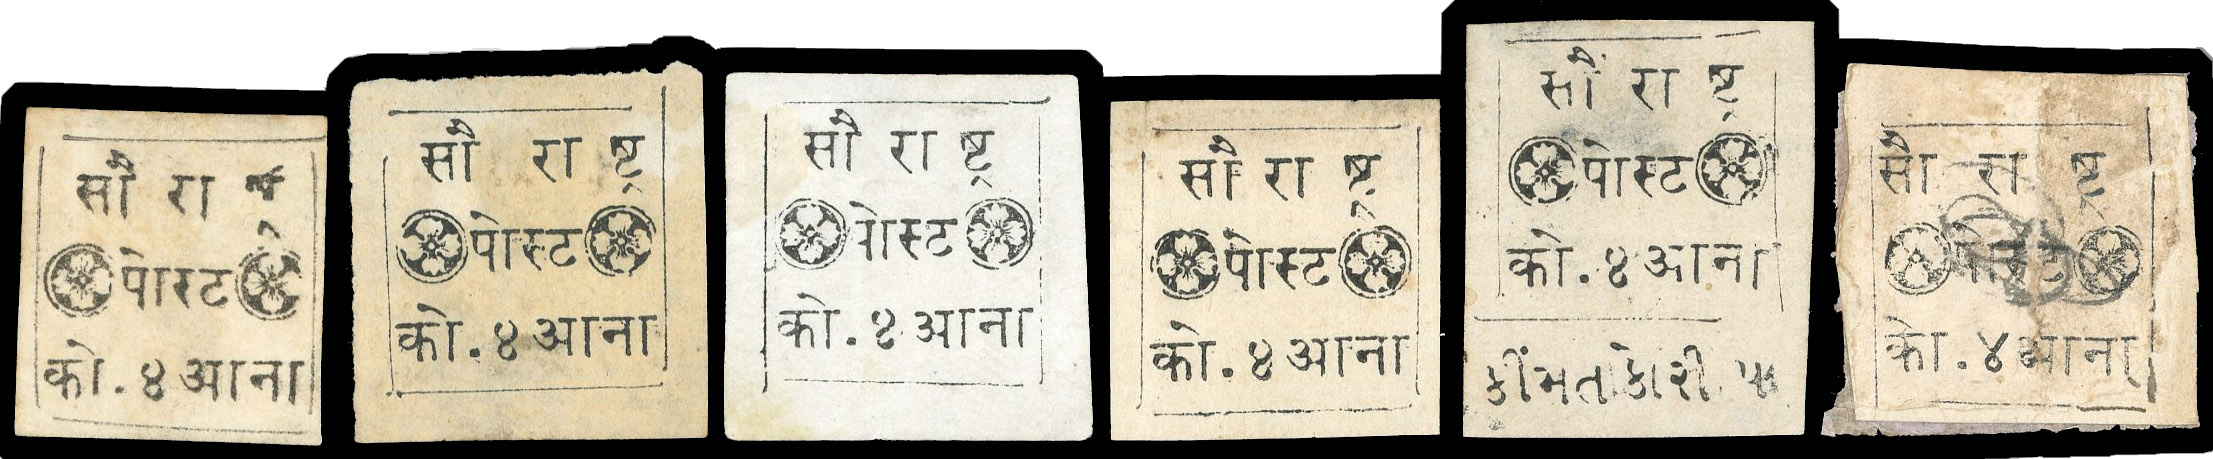 सौ रा
पोस्ट
को. ४ आना
सौ रा ष्ट्र
पोस्ट
को. ४ आना
सौ रा ष्ट्र
पोस्ट
को. ४ आना
सौ रा ष्ट्र
पोस्ट
को. ४ आना
सौं रा ष्ट्र
पोस्ट
को. ४ आना
કીંમત કોરી
सौ रा ष्ट्र
पोस्ट
को. ४ आना